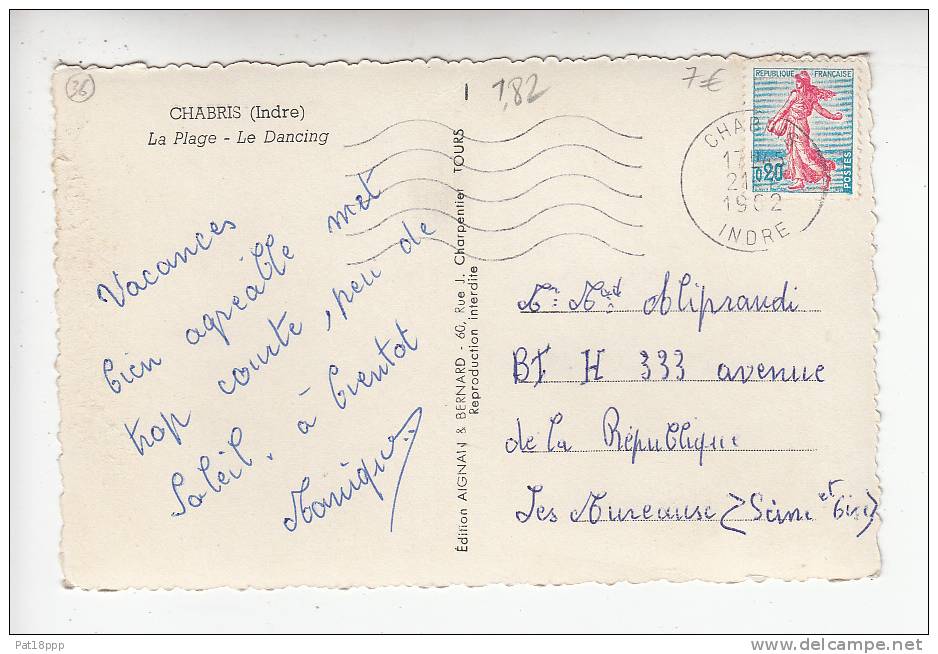 36
CHABRIS (Indre)
La Plage - Le Dancing
1,82
7€
REPUBLIQUE FRANÇAISE
0,20
POSTES
CHABRIS
17H
21
1962
INDRE
Vacances
bien agréable mat
trop courte, peu de
Soleil. à bientot
Monique
Edition AIGNAN & BERNARD - 60, Rue J. Charpentier TOURS
Reproduction interdite
Mr Md Aliprandi
BT H 333 avenue
de la République
Les Mureause (Seine et Oise)
Pat18ppp
www.delcampe.net